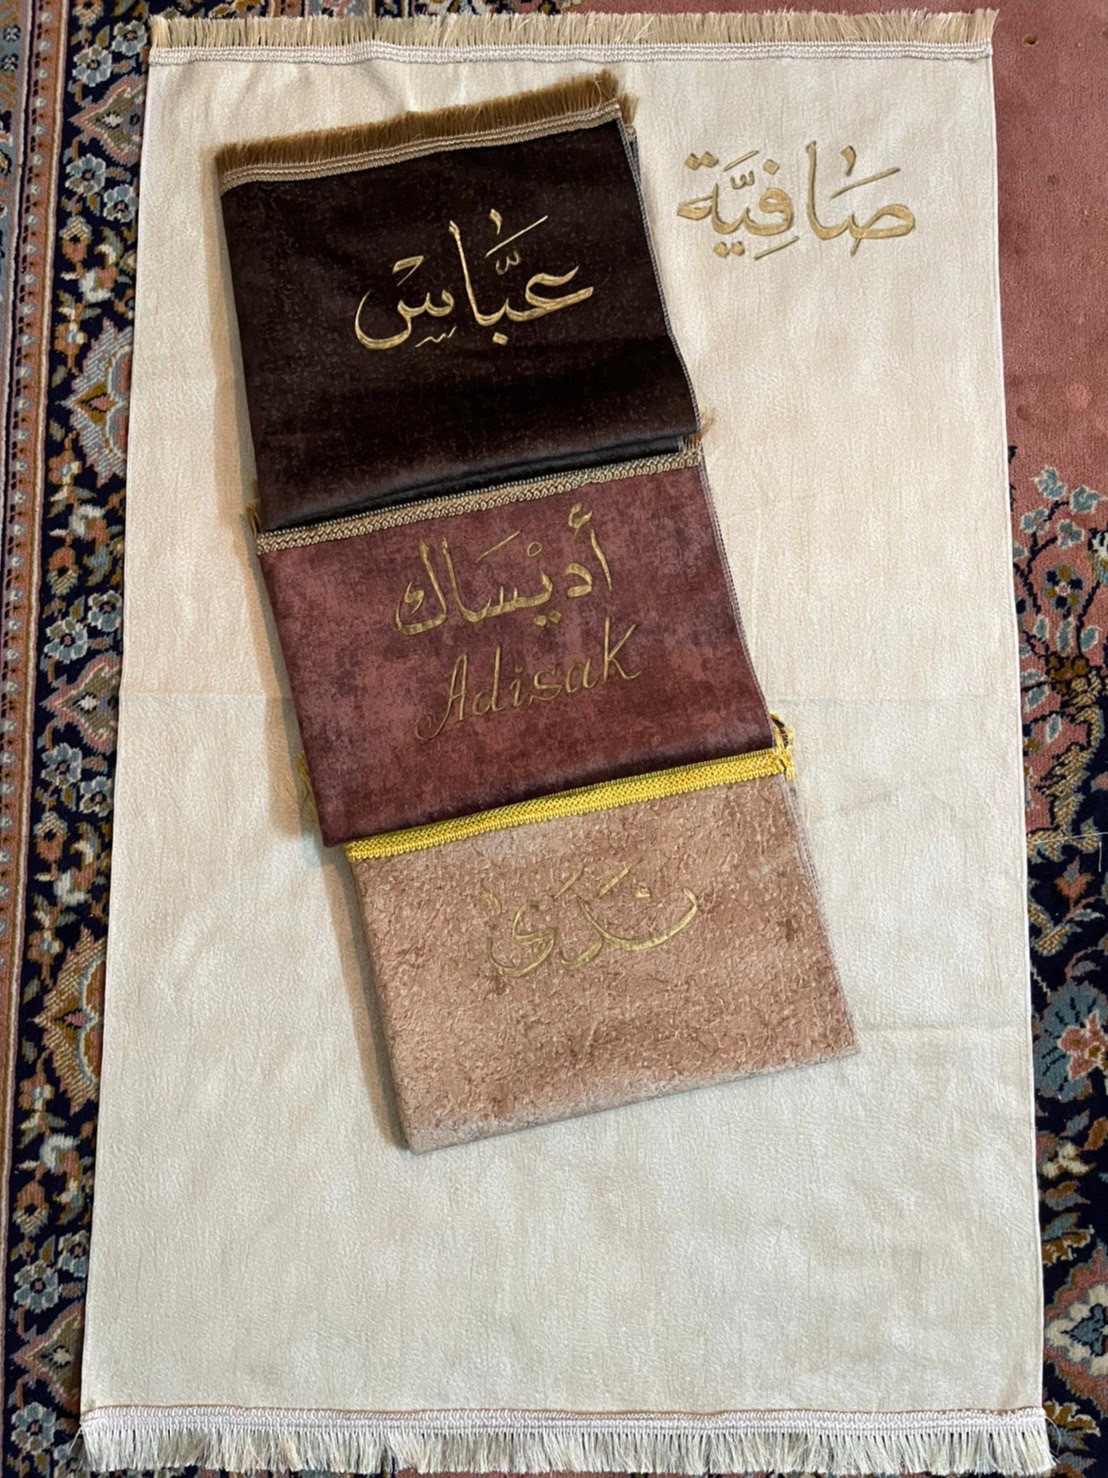 صَافِيَّة
عَبَّاسْ
أديْسَاك
Adisak
نَدَىْ